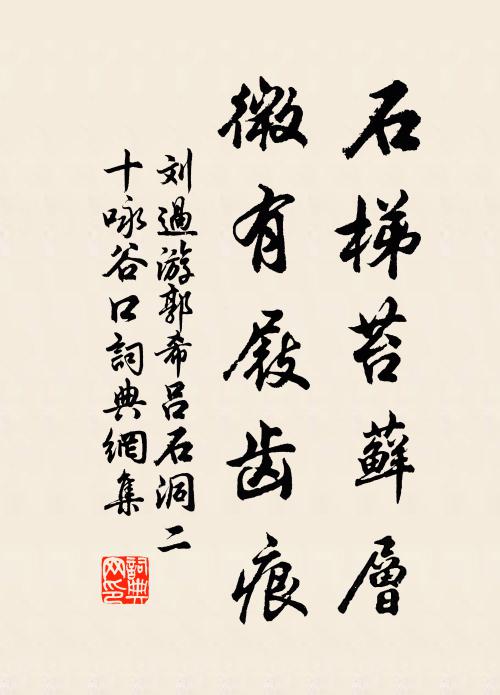 石梯苔蘚層
微有屐齿痕
刘過游郭希吕石洞二
十咏谷口詞典網集
詞典网印